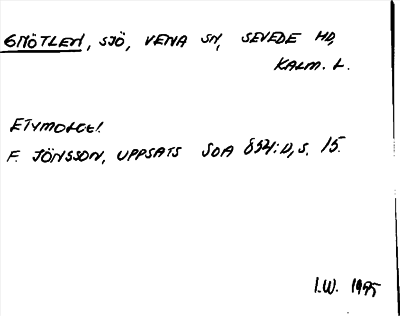 GNÖTLEN, SJÖ, VENA SN, SEVEDE HD,
KALM. L.
ETYMOLOGI.
F. JÖNSSON, UPPSATS SOA 854:D, S. 15.
I.W. 1995